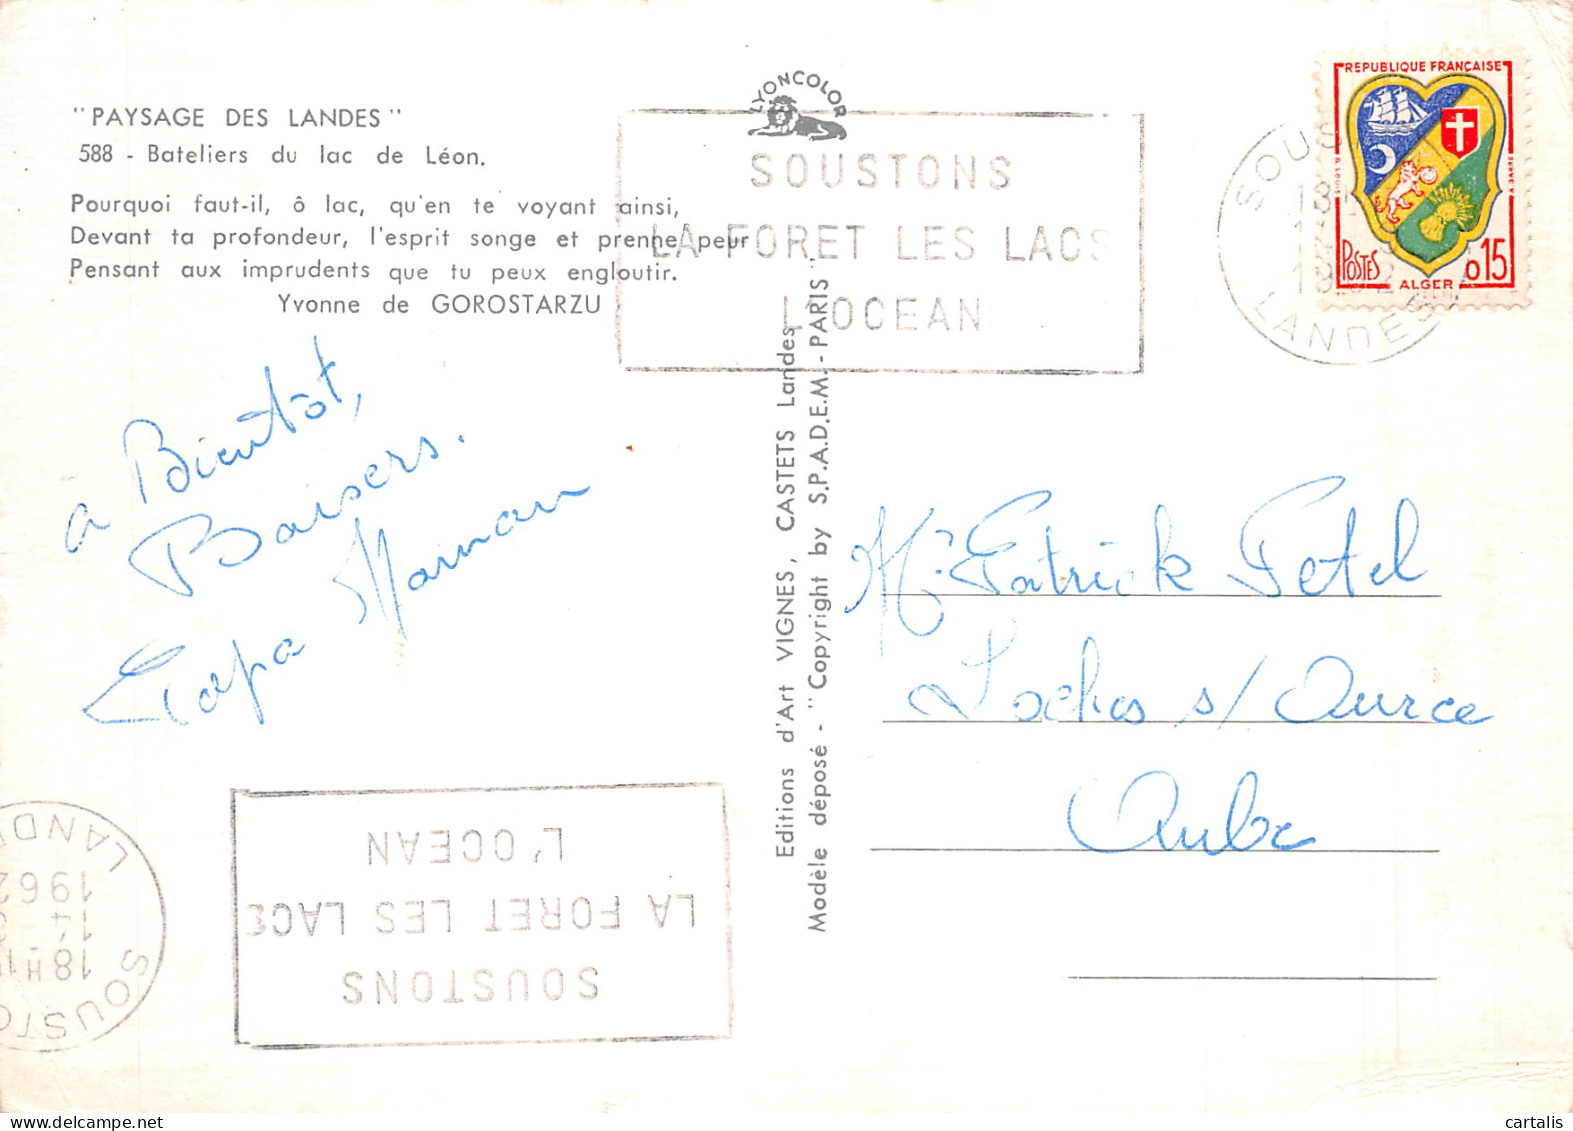 "PAYSAGE DES LANDES"
588 - Bateliers du lac de Léon.
Pourquoi faut-il, ô lac, qu'en te voyant ainsi,
Devant ta profondeur, l'esprit songe et prenne peur
Pensant aux imprudents que tu peux engloutir.
Yvonne de GOROSTARZU
LYONCOLOR
SOUSTONS
LA FORET LES LACS
L'OCEAN
REPUBLIQUE FRANÇAISE
POSTES
ALGER
0,15
LANDES
à Bientôt,
Baisers.
Papa Maman
Editions d'Art VIGNES, CASTETS Landes
Modèle déposé - "Copyright by S.P.A.D.E.M. - PARIS"
Mr Patrick Petel
Loches s/ Ource
Aube
SOUSTONS
LA FORET LES LACS
L'OCEAN
SOUSTO
18H1
14-
1962
LANDE
cartalis